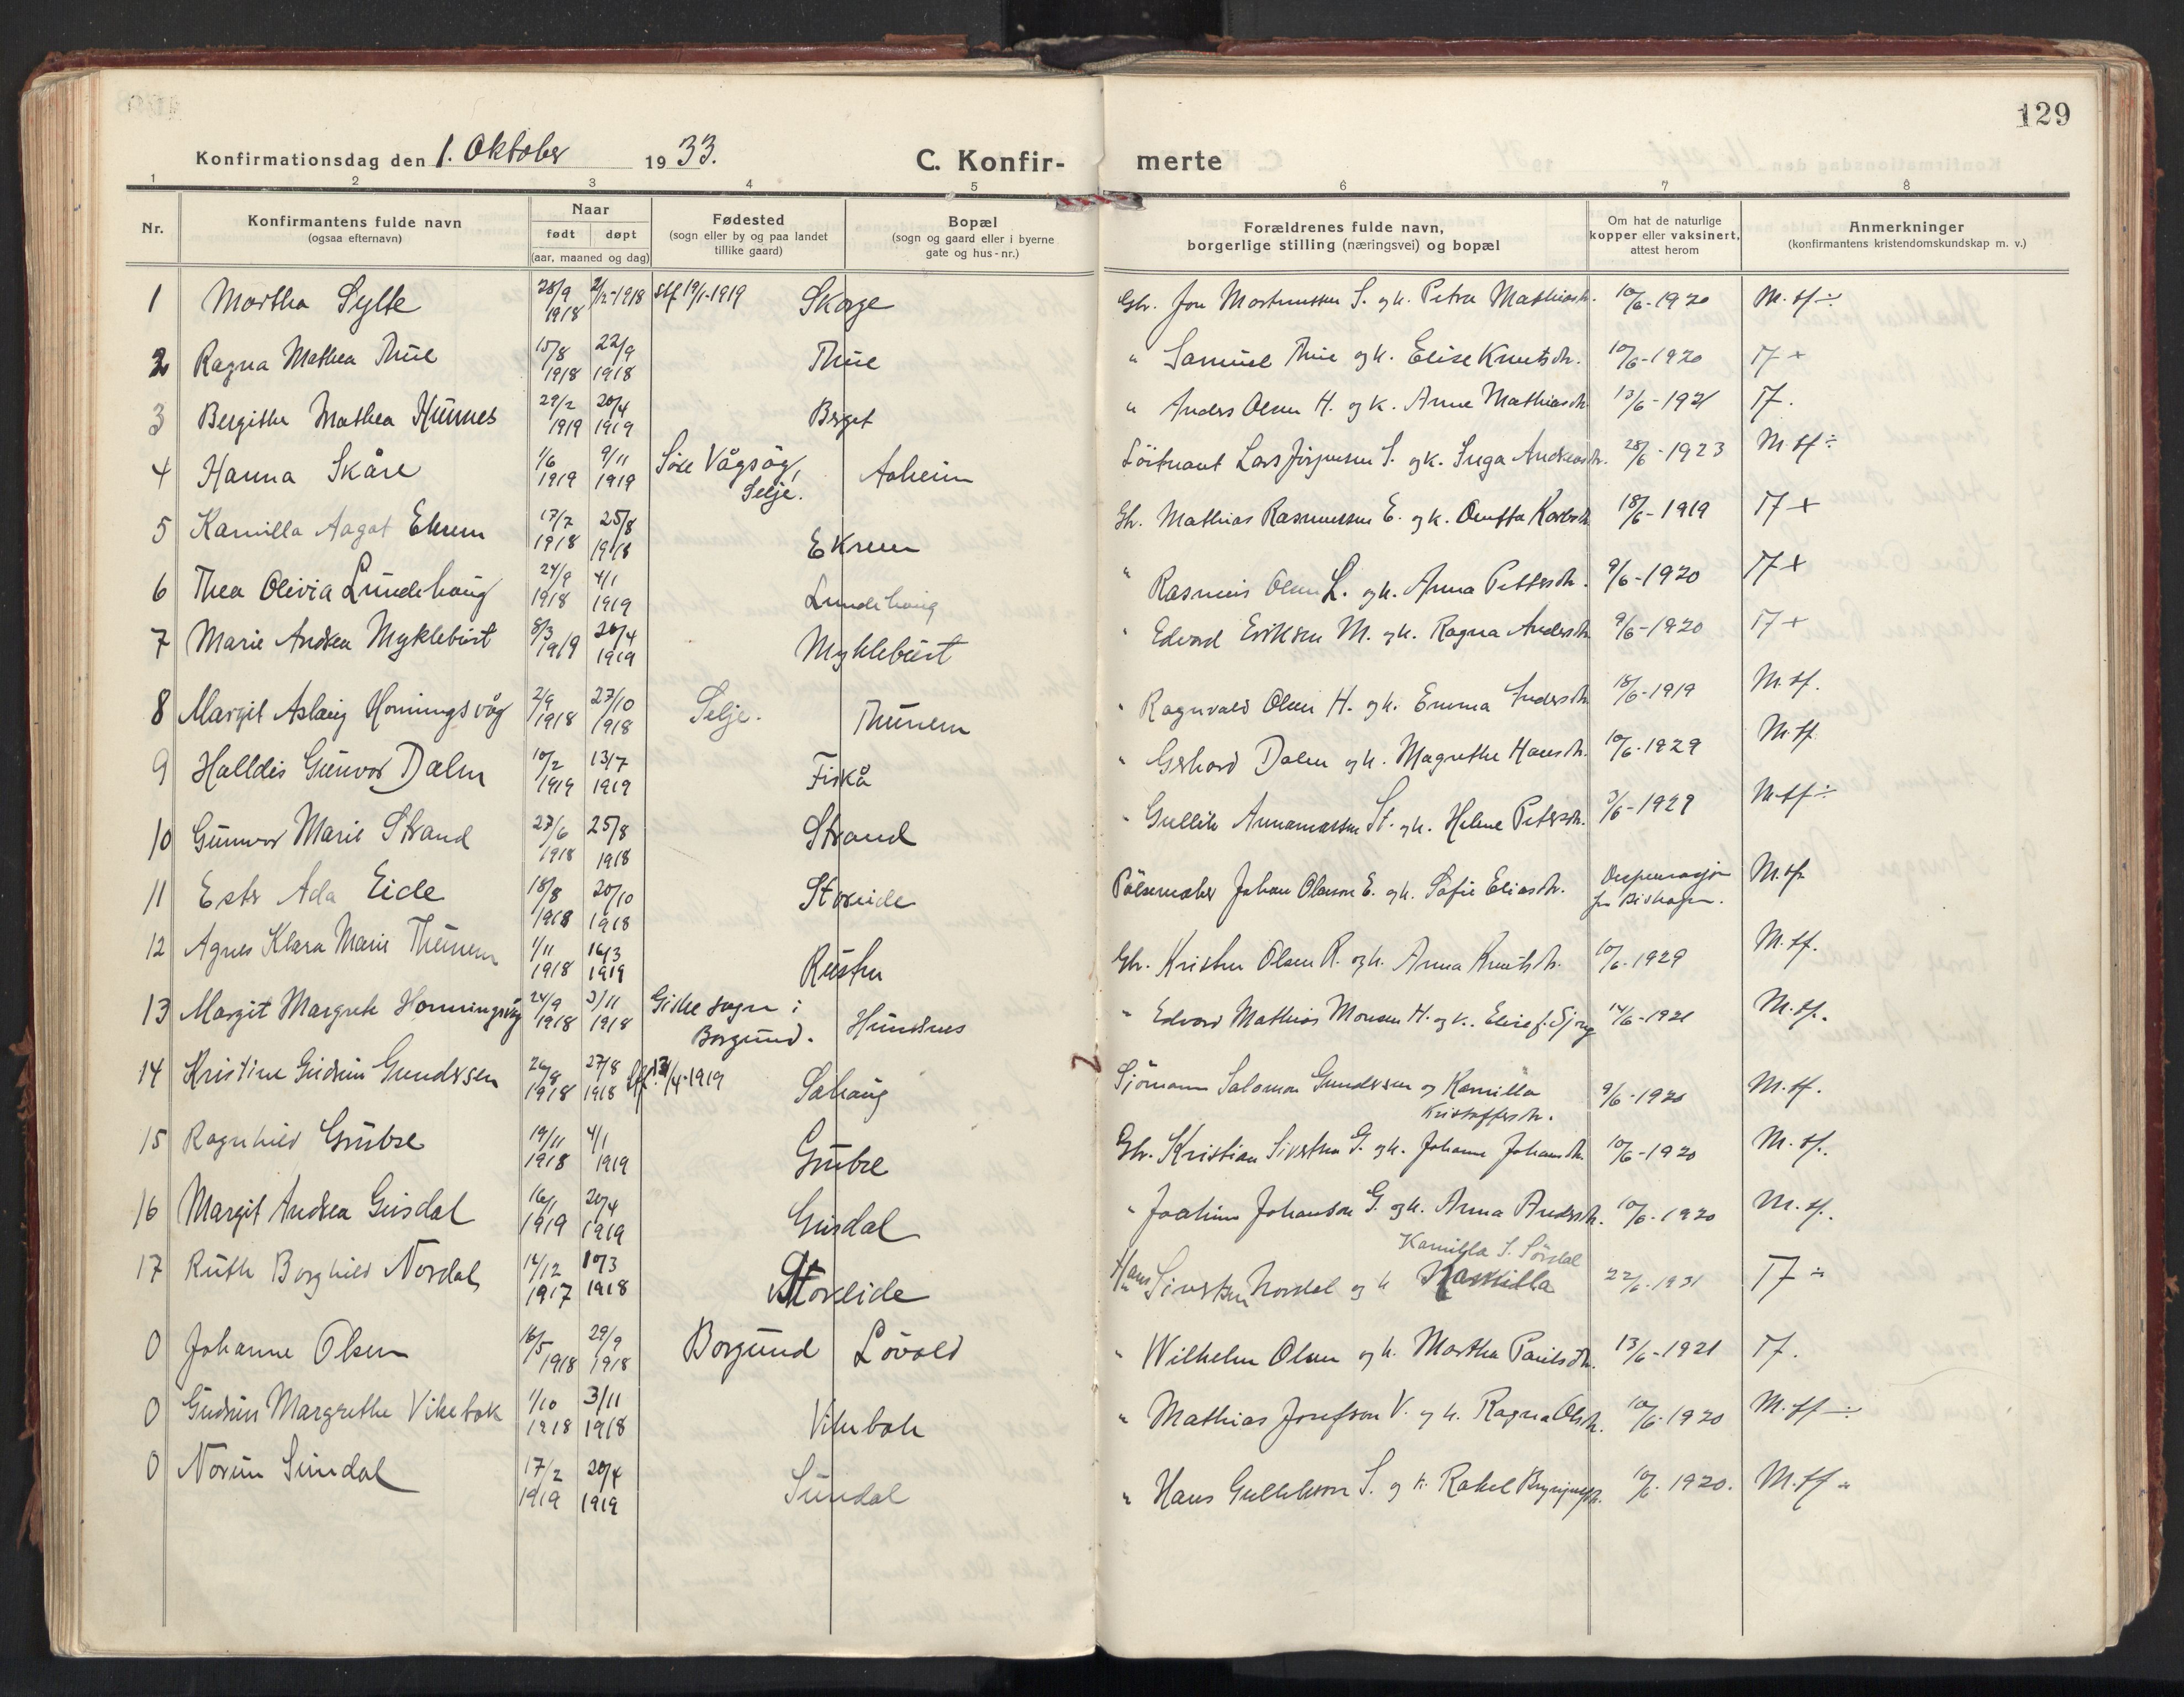 129
Konfirmationsdag den 1. Oktober 1933.
C. Konfir- merte
1 2 3 4 5 6 7 8
Nr.
Konfirmantens fulde navn
(ogsaa efternavn)
Naar
født døpt
(aar, maaned og dag)
Fødested
(sogn eller by og paa landet
tillike gaard)
Bopæl
(sogn og gaard eller i byerne
gate og hus-nr.)
Forældrenes fulde navn,
borgerlige stilling (næringsvei) og bopæl
Om hat de naturlige
kopper eller vaksinert,
attest herom
Anmerkninger
(konfirmantens kristendomskundskap m. v.)
1 Martha Sylte 28/9 1918 2/12-1918 stf 19/1-1919 Skorge Gbr. Jon Martinussen S. og k. Petra Mathiasdtr. 10/6-1920 M. tf ÷
2 Ragna Mathea Thue 15/8 1918 22/9 1918 Thue " Samuel Thue og k. Elise Knutsdtr. 10/6-1920 Tf +
3 Bergithe Mathea Hunnes 29/2 1919 20/4 1919 Berget " Anders Olsen H. og k. Anne Mathiasdtr. 13/6-1921 Tf.
4 Hanna Skåre 1/6 1919 9/11 1919 Søre Vågsøy, Selje. Aaheim Löitnant Lars Jörgensen S. og k. Inga Andreasdtr. 28/6-1923 M. tf ÷
5 Kamilla Aagot Ekrem 17/7 1918 25/8 1918 Ekrem Gbr. Mathias Rasmussen E. og k. Oluffa Karlsdtr. 18/6-1919 Tf +
6 Thea Olivia Lundehaug 24/9 1918 4/1 1919 Lundehaug " Rasmus Olsen L. og k. Anna Pettersdtr. 9/6-1920 Tf +
7 Marie Andrea Myklebust 8/3 1919 20/4 1919 Myklebust " Edvard Eriksen M. og k. Ragna Andersdtr. 9/6-1920 Tf +
8 Margit Aslaug Honningsvåg 2/9 1918 27/10 1918 Selje. Thunem " Ragnvald Olsen H. og k. Emma Andersdtr. 18/6-1919 M. tf.
9 Halldis Gunvor Dalen 10/2 1919 13/7 1919 Fiskå " Gerhard Dalen og k. Magrethe Hansdtr. 10/6-1929 M. tf.
10 Gunvor Marie Strand 27/6 1918 25/8 1918 Strand " Gullik Annaniassen St. og k. Helene Petersdtr. 3/6-1929 M. tf ÷
11 Ester Ada Eide 18/8 1918 20/10 1918 Storeide Pölsemaker Johan Olason E. og k. Sofie Eliasdtr. Dispensasjon fra Biskopen. M. tf.
12 Agnes Klara Marie Thunem 1/11 1918 16/3 1919 Rusten Gbr. Kristen Olsen R. og k. Anna Knutsdtr. 10/6-1929 M. tf.
13 Margit Margrete Honningsvåg 24/9 1918 3/11 1918 Giske sogn i Borgund. Hundsnes " Edvard Mathias Monsen H. og k. Elise f. 14/6-1921 M. tf.
14 Kristine Gudrun Gundersen 26/8 1918 27/8 1918 Stf. /4-1919 Sahaug Sjömann Salomon Gundersen og Kamilla Kristoffersdtr. 9/6-1920 M. tf.
15 Ragnhild Gurbre 19/11 1918 4/1 1919 Gurbre Gbr. Kristian Sivertsen G. og k. Johanne Johansdtr. 10/6-1920 M. tf.
16 Margit Andrea Gusdal 16/1 1919 20/4 1919 Gusdal " Joakim Johanson G. og k. Anna Andersdtr. 10/6-1920 M. tf.
Kamilla S. Sördal
17 Ruth Borghild Nordal 14/12 1917 10/3 1918 Storeide Hans Sivertsen Nordal og k Kamilla 22/6-1931 Tf ÷
0 Johanne Olsen 16/5 1918 29/9 1918 Borgund Lövold " Wilhelm Olsen og k. Martha Paulsdtr. 13/6-1921 Tf.
0 Gudrun Margrethe Vikebak 1/10 1918 3/11 1918 Vikebak " Mathias Josefson V. og k. Ragna Olsdtr. 10/6-1920 M. tf ÷
0 Norun Sundal 17/2 1919 20/4 1919 Sundal " Hans Gullikson S. og k. Rakel 10/6-1920. M. tf ÷